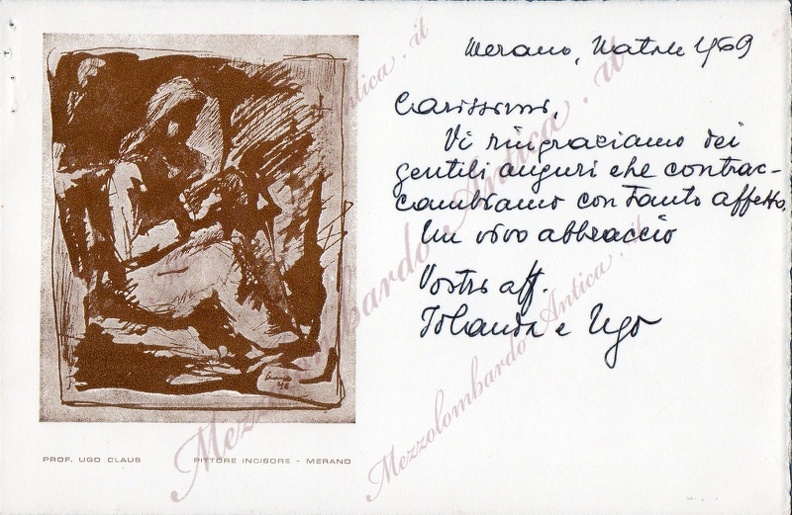 Merano, Natale 1969
Carissimi,
Vi ringraziamo dei
gentili auguri che contrac-
cambiamo con tanto affetto.
Un vivo abbraccio
Vostri aff.
Iolanda e Ugo
PROF. UGO CLAUS PITTORE INCISORE - MERANO
Mezzolombardo Antica.it
Mezzolombardo Antica.it